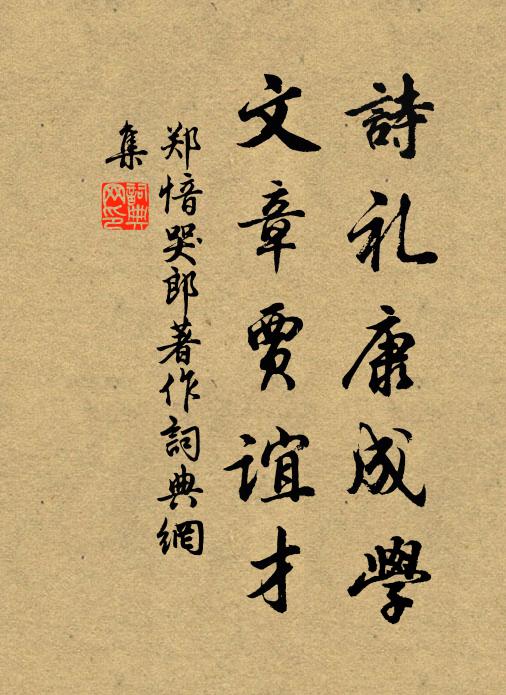 詩礼康成學
文章賈誼才
郑愔哭郎著作詞典網
集
詞典
网印